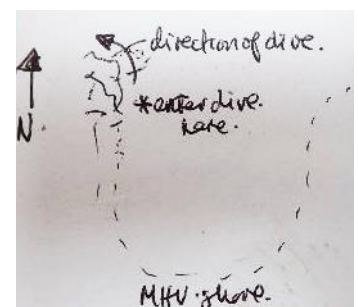 direction of dive.
*enter dive
here.
N.
MHV shore.